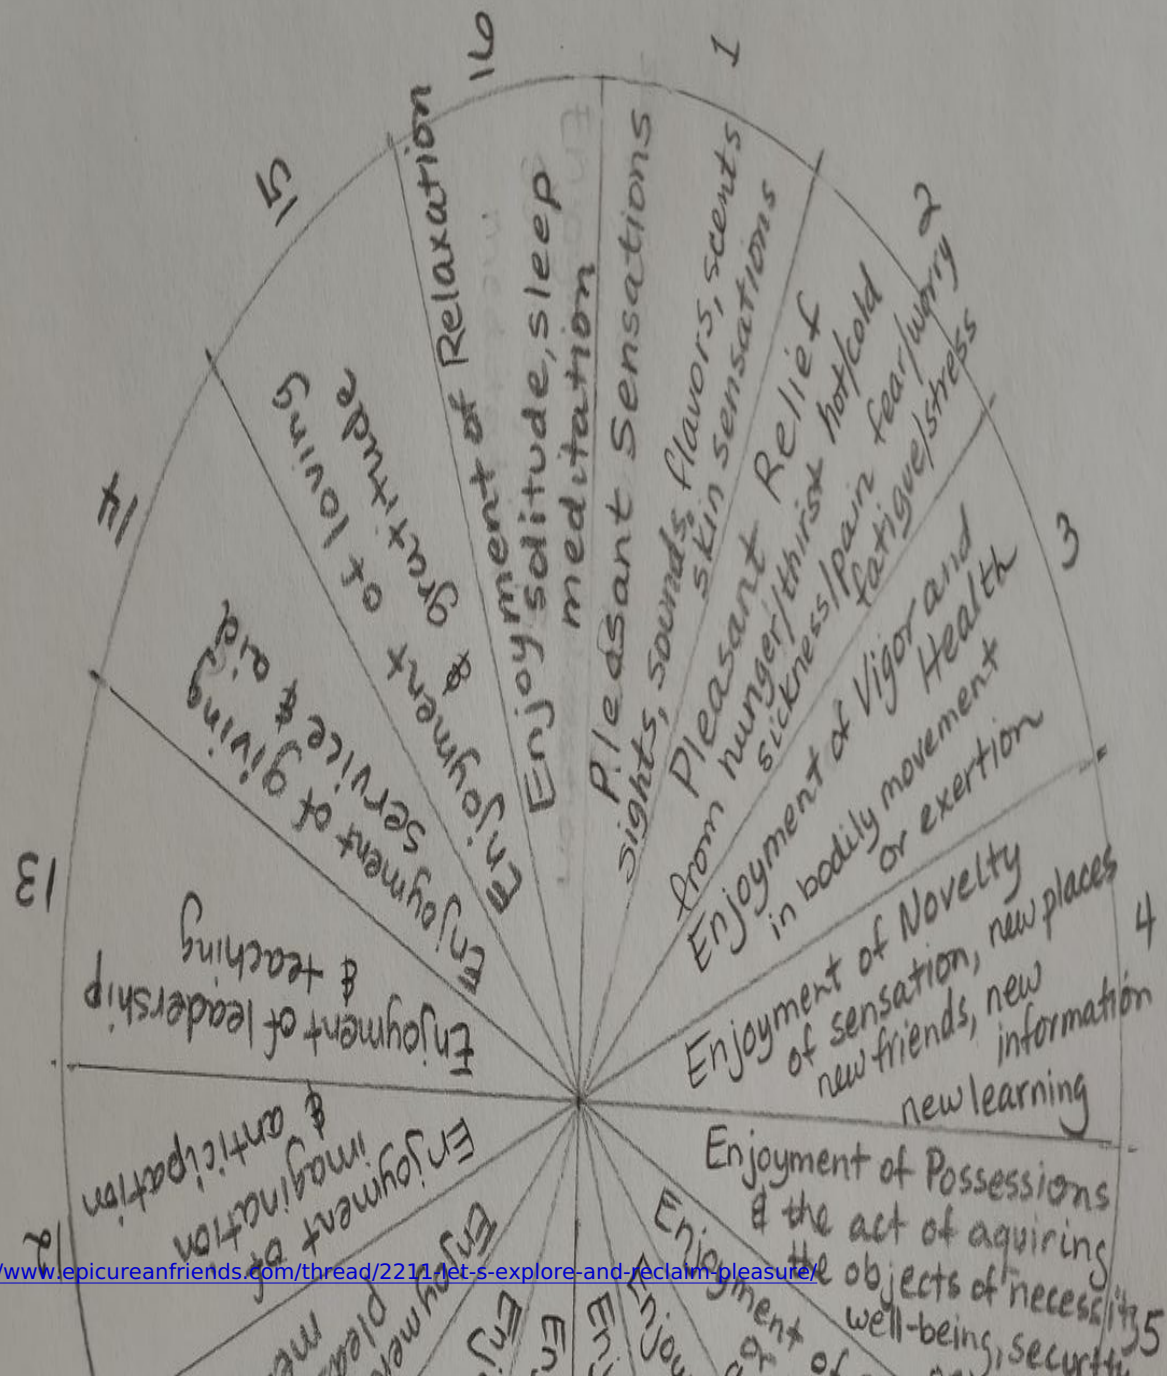 1
Pleasant Sensations
sights, sounds, flavors, scents
skin sensations
2
Pleasant Relief
from hunger/thirst hot/cold
sickness/pain fear/worry
fatigue/stress
3
Enjoyment of Vigor and
Health
in bodily movement
or exertion
4
Enjoyment of Novelty
of sensation, new places
new friends, new
information
new learning
5
Enjoyment of Possessions
& the act of aquiring
the objects of necessity
well-being, security
Enjoyment of
or
12
Enjoyment of
imagination
& anticipation
13
Enjoyment of leadership
& teaching
14
Enjoyment of giving
service & aid
15
Enjoyment of loving
& gratitude
16
Enjoyment of Relaxation
solitude, sleep
meditation
/www.epicureanfriends.com/thread/2211-let-s-explore-and-reclaim-pleasure/